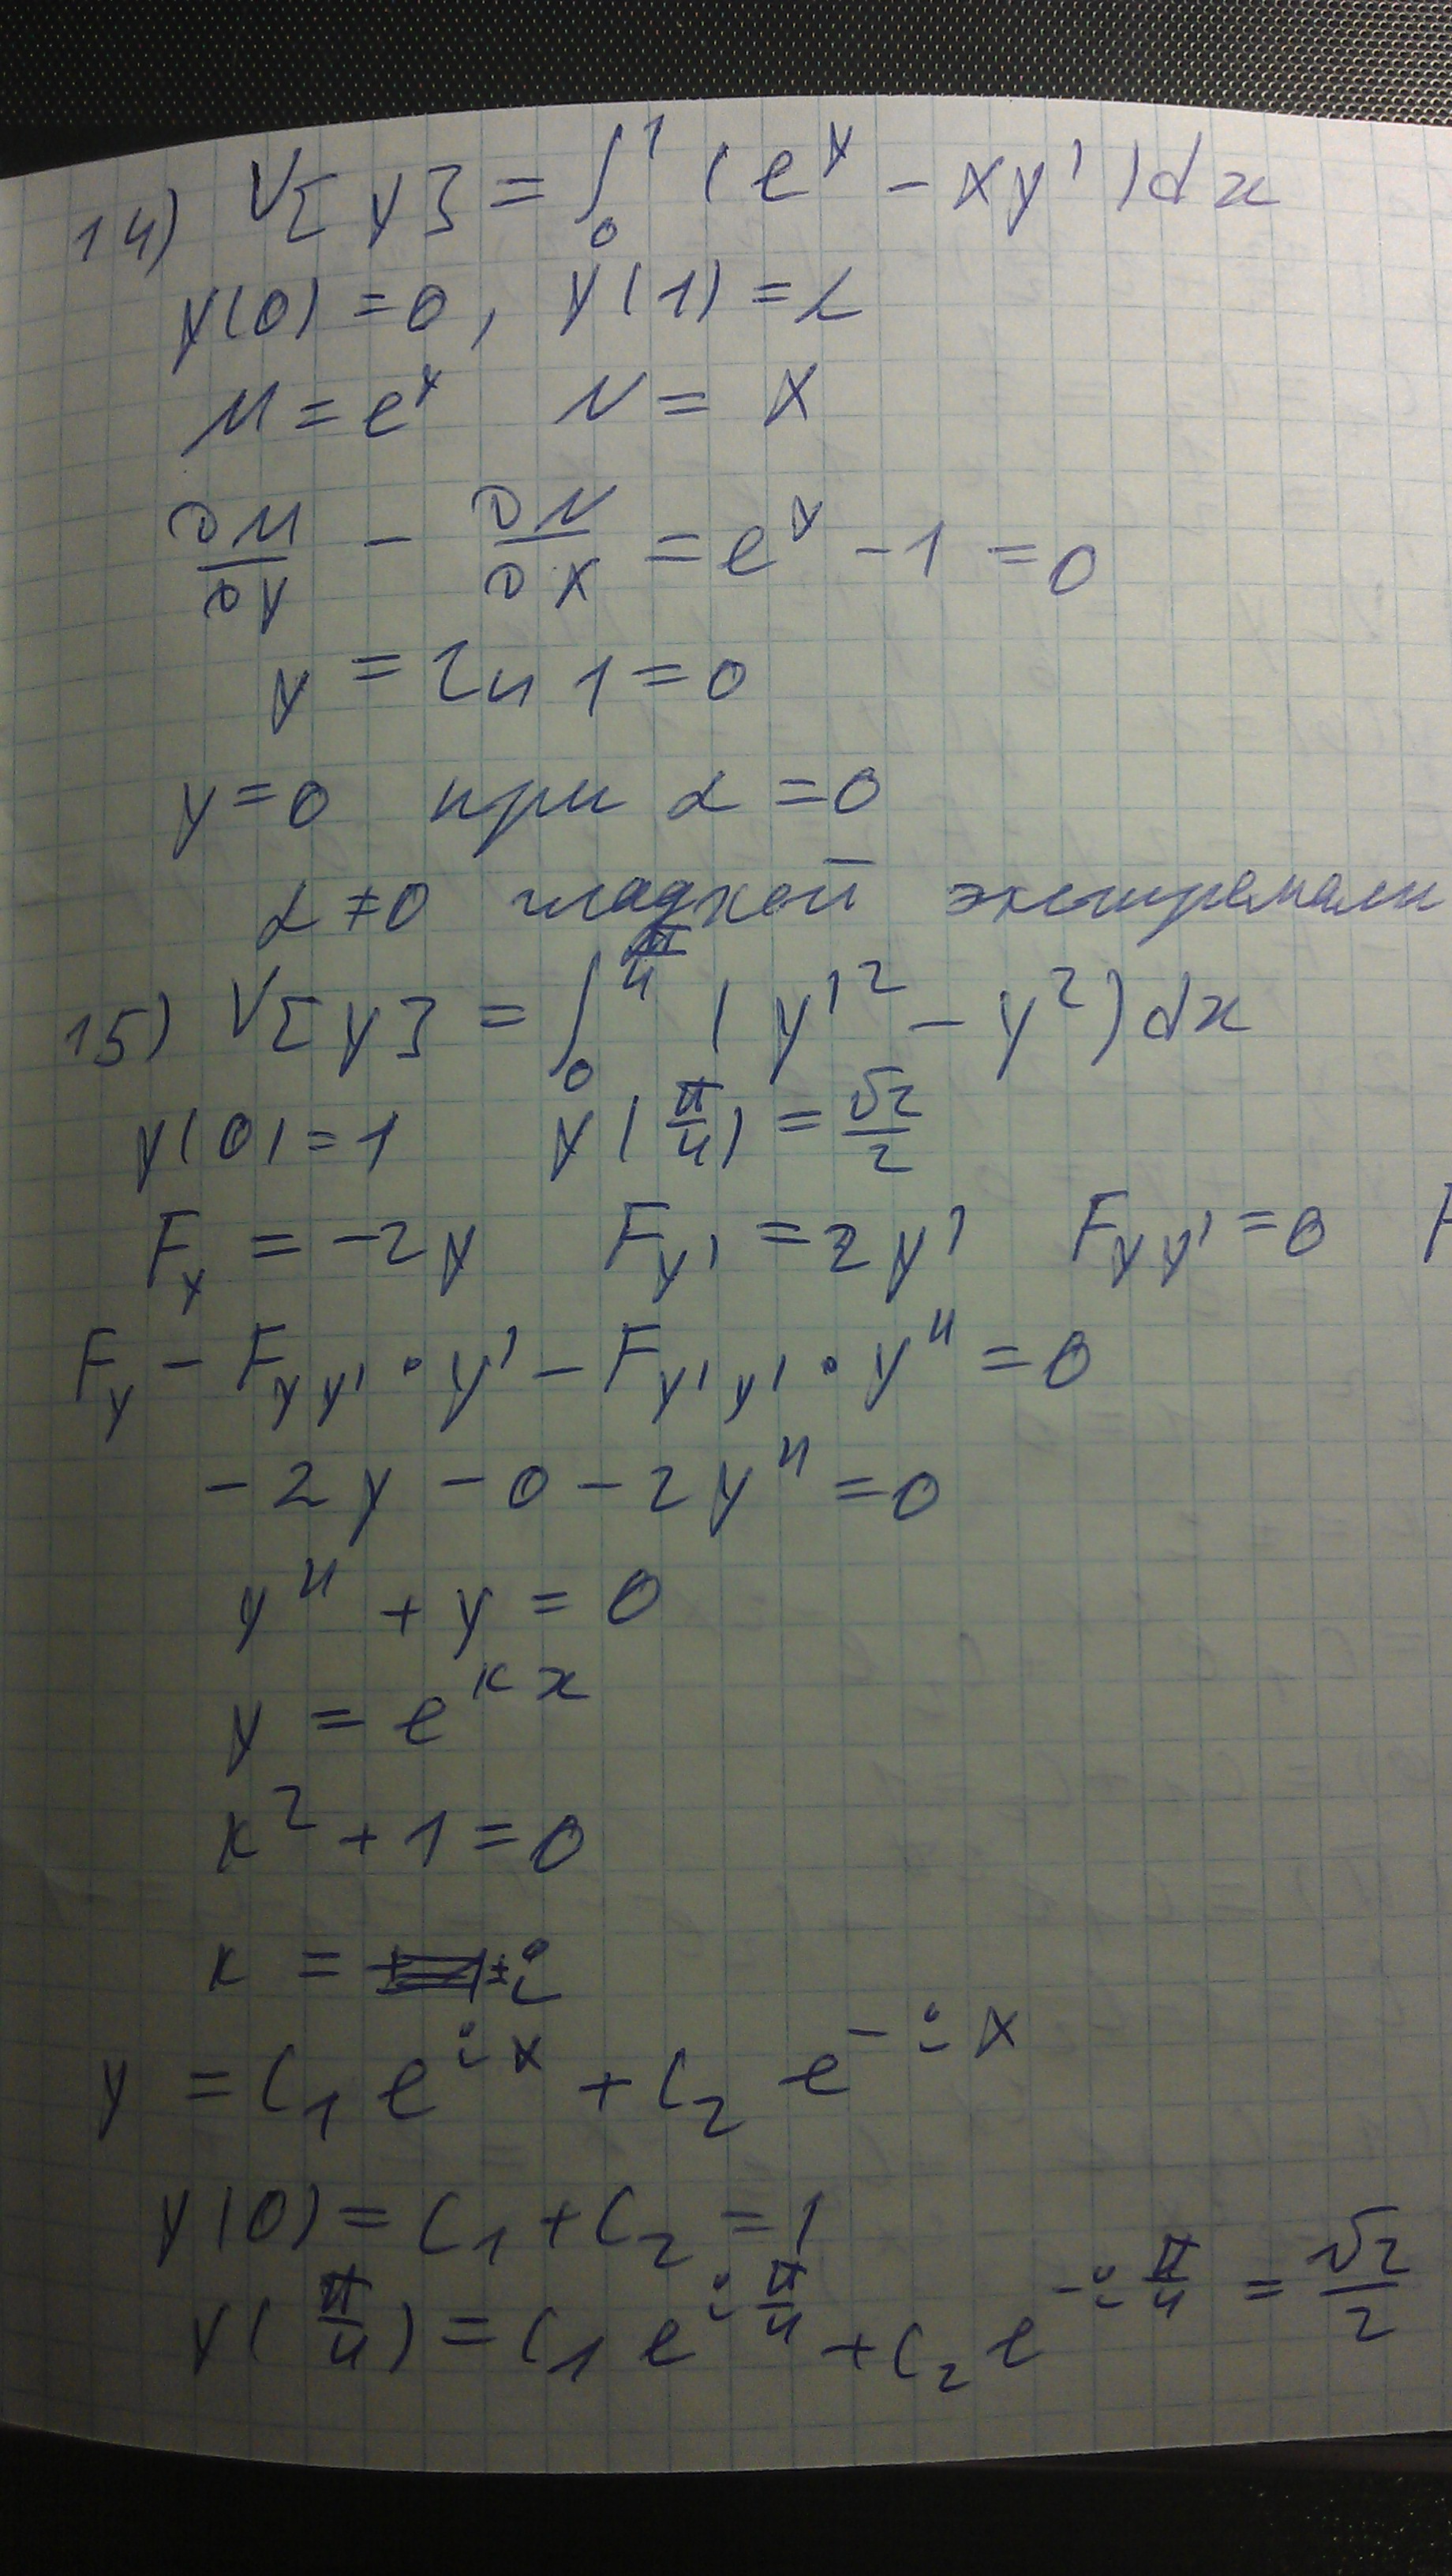 14) V[y] = ∫₀¹ (e^y - xy')dx
y(0) = 0, y(1) = α
M = e^y N = x
∂M/∂y - ∂N/∂x = e^y - 1 = 0
y = ln 1 = 0
y = 0 при α = 0
α ≠ 0 гладкой экстремали
15) V[y] = ∫₀^(π/4) (y'² - y²)dx
y(0) = 1 y(π/4) = √2/2
F_y = -2y F_y' = 2y' F_yy' = 0 F
F_y - F_yy' · y' - F_y'y' · y'' = 0
-2y - 0 - 2y'' = 0
y'' + y = 0
y = e^(kx)
k² + 1 = 0
k = ±i
y = C₁ e^(ix) + C₂ e^(-ix)
y(0) = C₁ + C₂ = 1
y(π/4) = C₁ e^(iπ/4) + C₂ e^(-iπ/4) = √2/2